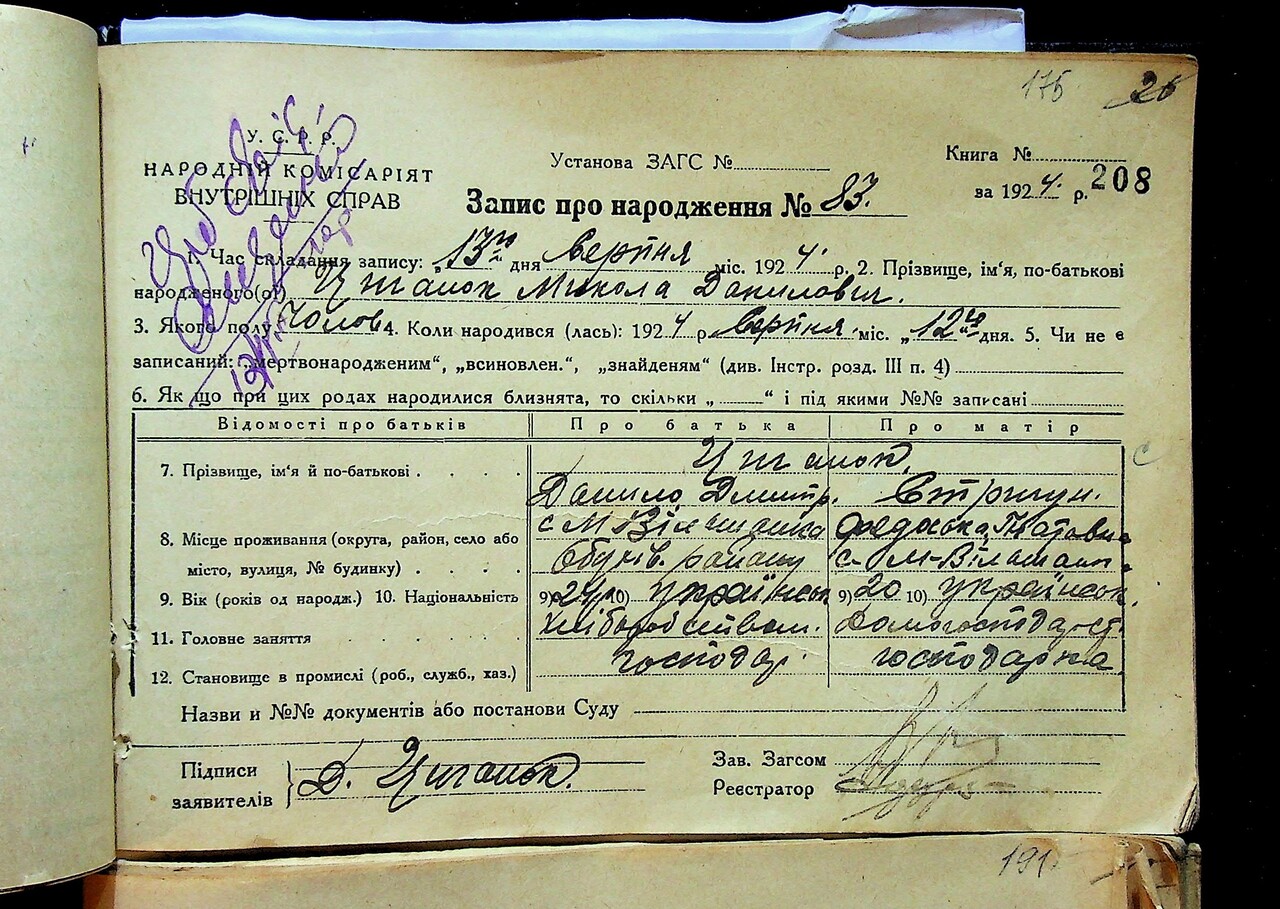 175 26
У. С. Р. Р.
НАРОДНІЙ КОМІСАРІЯТ
ВНУТРІШНІХ СПРАВ
Установа ЗАГС №
Книга №
за 1924 р. 208
Запис про народження № 83.
1. Час складання запису: „13го дня Серпня міс. 1924 р. 2. Прізвище, ім'я, по-батькові
народженого(ої) Циганок Микола Данилович.
3. Якого полу: Чолов. 4. Коли народився (лась): 1924 р. Серпня міс. „12го дня. 5. Чи не є
записаний: „мертвонародженим“, „всиновлен.“, „знайденям“ (див. Інстр. розд. III п. 4)
6. Як що при цих родах народилися близнята, то скільки „ “ і під якими №№ записані
Відомості про батьків Про батька Про матір
7. Прізвище, ім'я й по-батькові Циганок.
Данило Дмитр. Стригун.
с М Вільшанка Федоська
8. Місце проживання (округа, район, село або
місто, вулиця, № будинку) Обухів. району с. М-Вільшан.
9. Вік (років од народж.) 10. Національність 9) 24 р. 10) українськ 9) 20 10) українськ.
11. Головне заняття хліборобством. домогосподарст.
12. Становище в промислі (роб., служб., хаз.) господар. господарка
Назви и №№ документів або постанови Суду
Підписи
заявителів Д. Циганок.
Зав. Загсом
Реєстратор
191